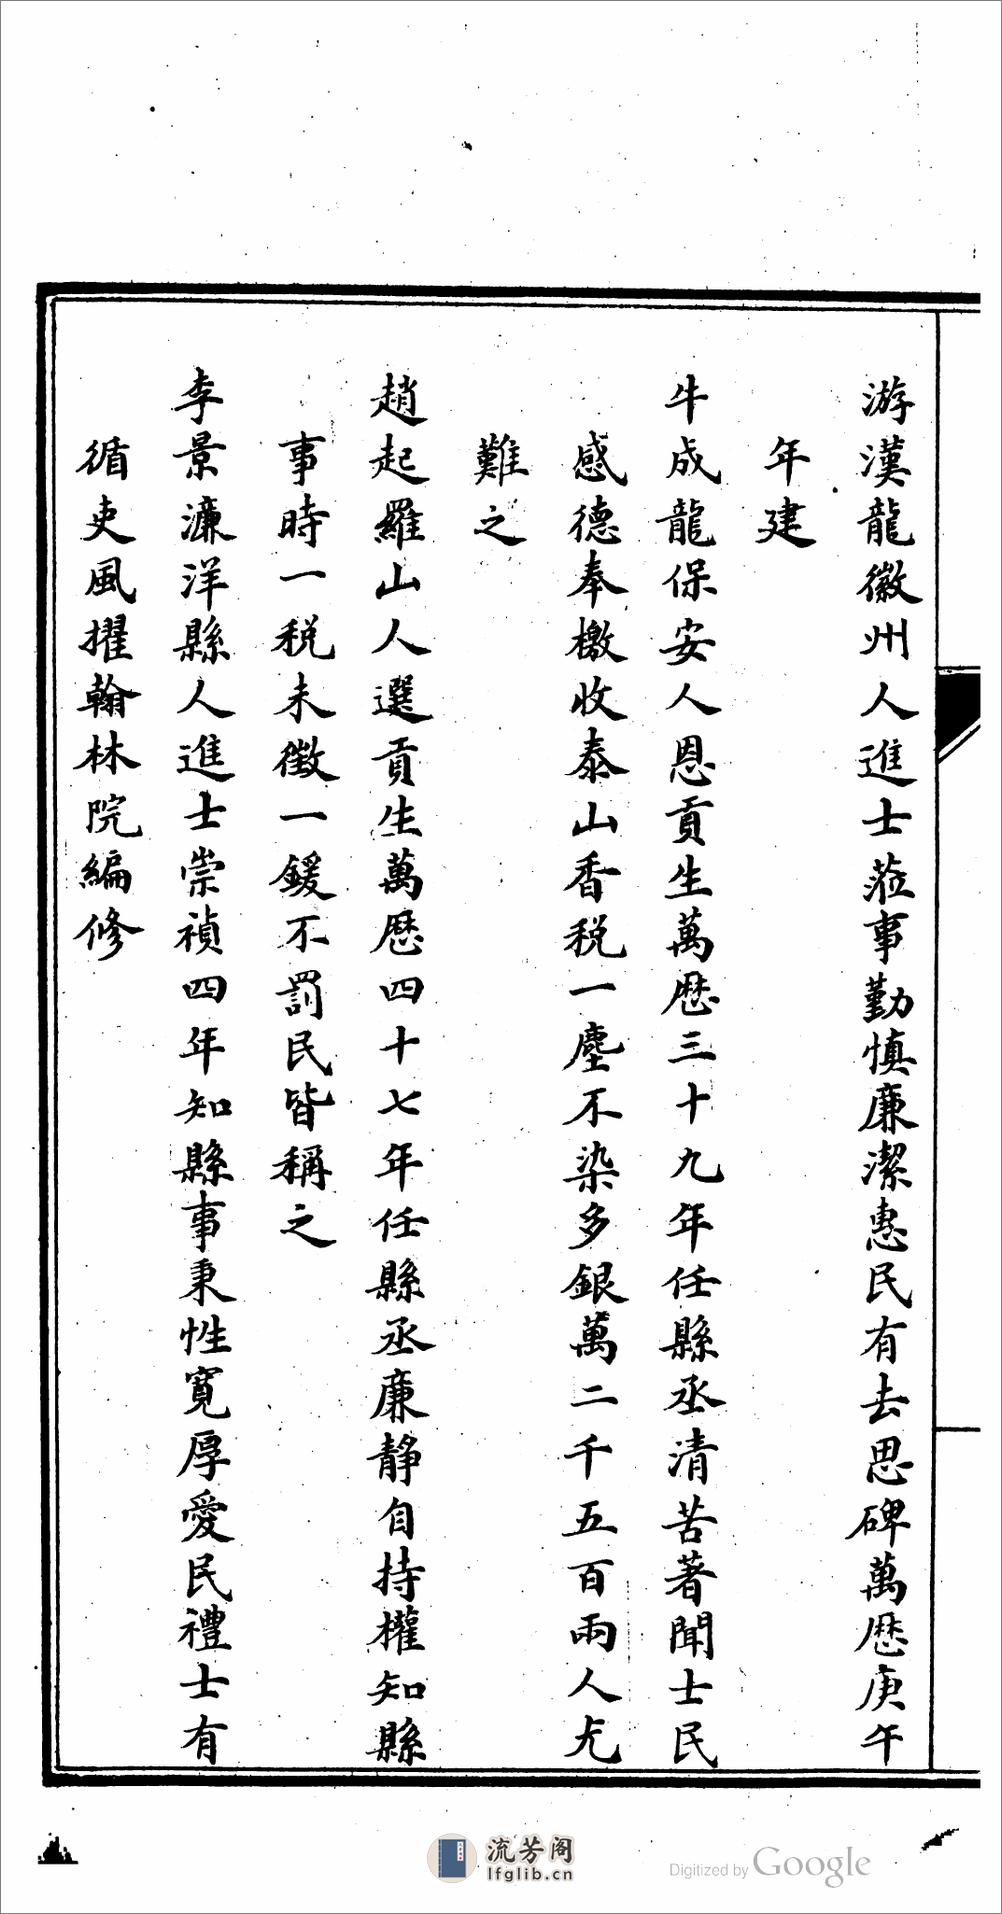 游漢龍徽州人進士蒞事勤慎廉潔惠民有去思碑萬歴庚午
年建
牛成龍保安人恩貢生萬歴三十九年任縣丞清苦著聞士民
感德奉檄收泰山香税一塵不染多銀萬二千五百兩人尤
難之
趙起羅山人選貢生萬歴四十七年任縣丞廉靜自持權知縣
事時一税未徵一鍰不罰民皆稱之
李景濂洋縣人進士崇禎四年知縣事秉性寬厚愛民禮士有
循吏風擢翰林院編修
流芳阁
lfglib.cn
Digitized by Google